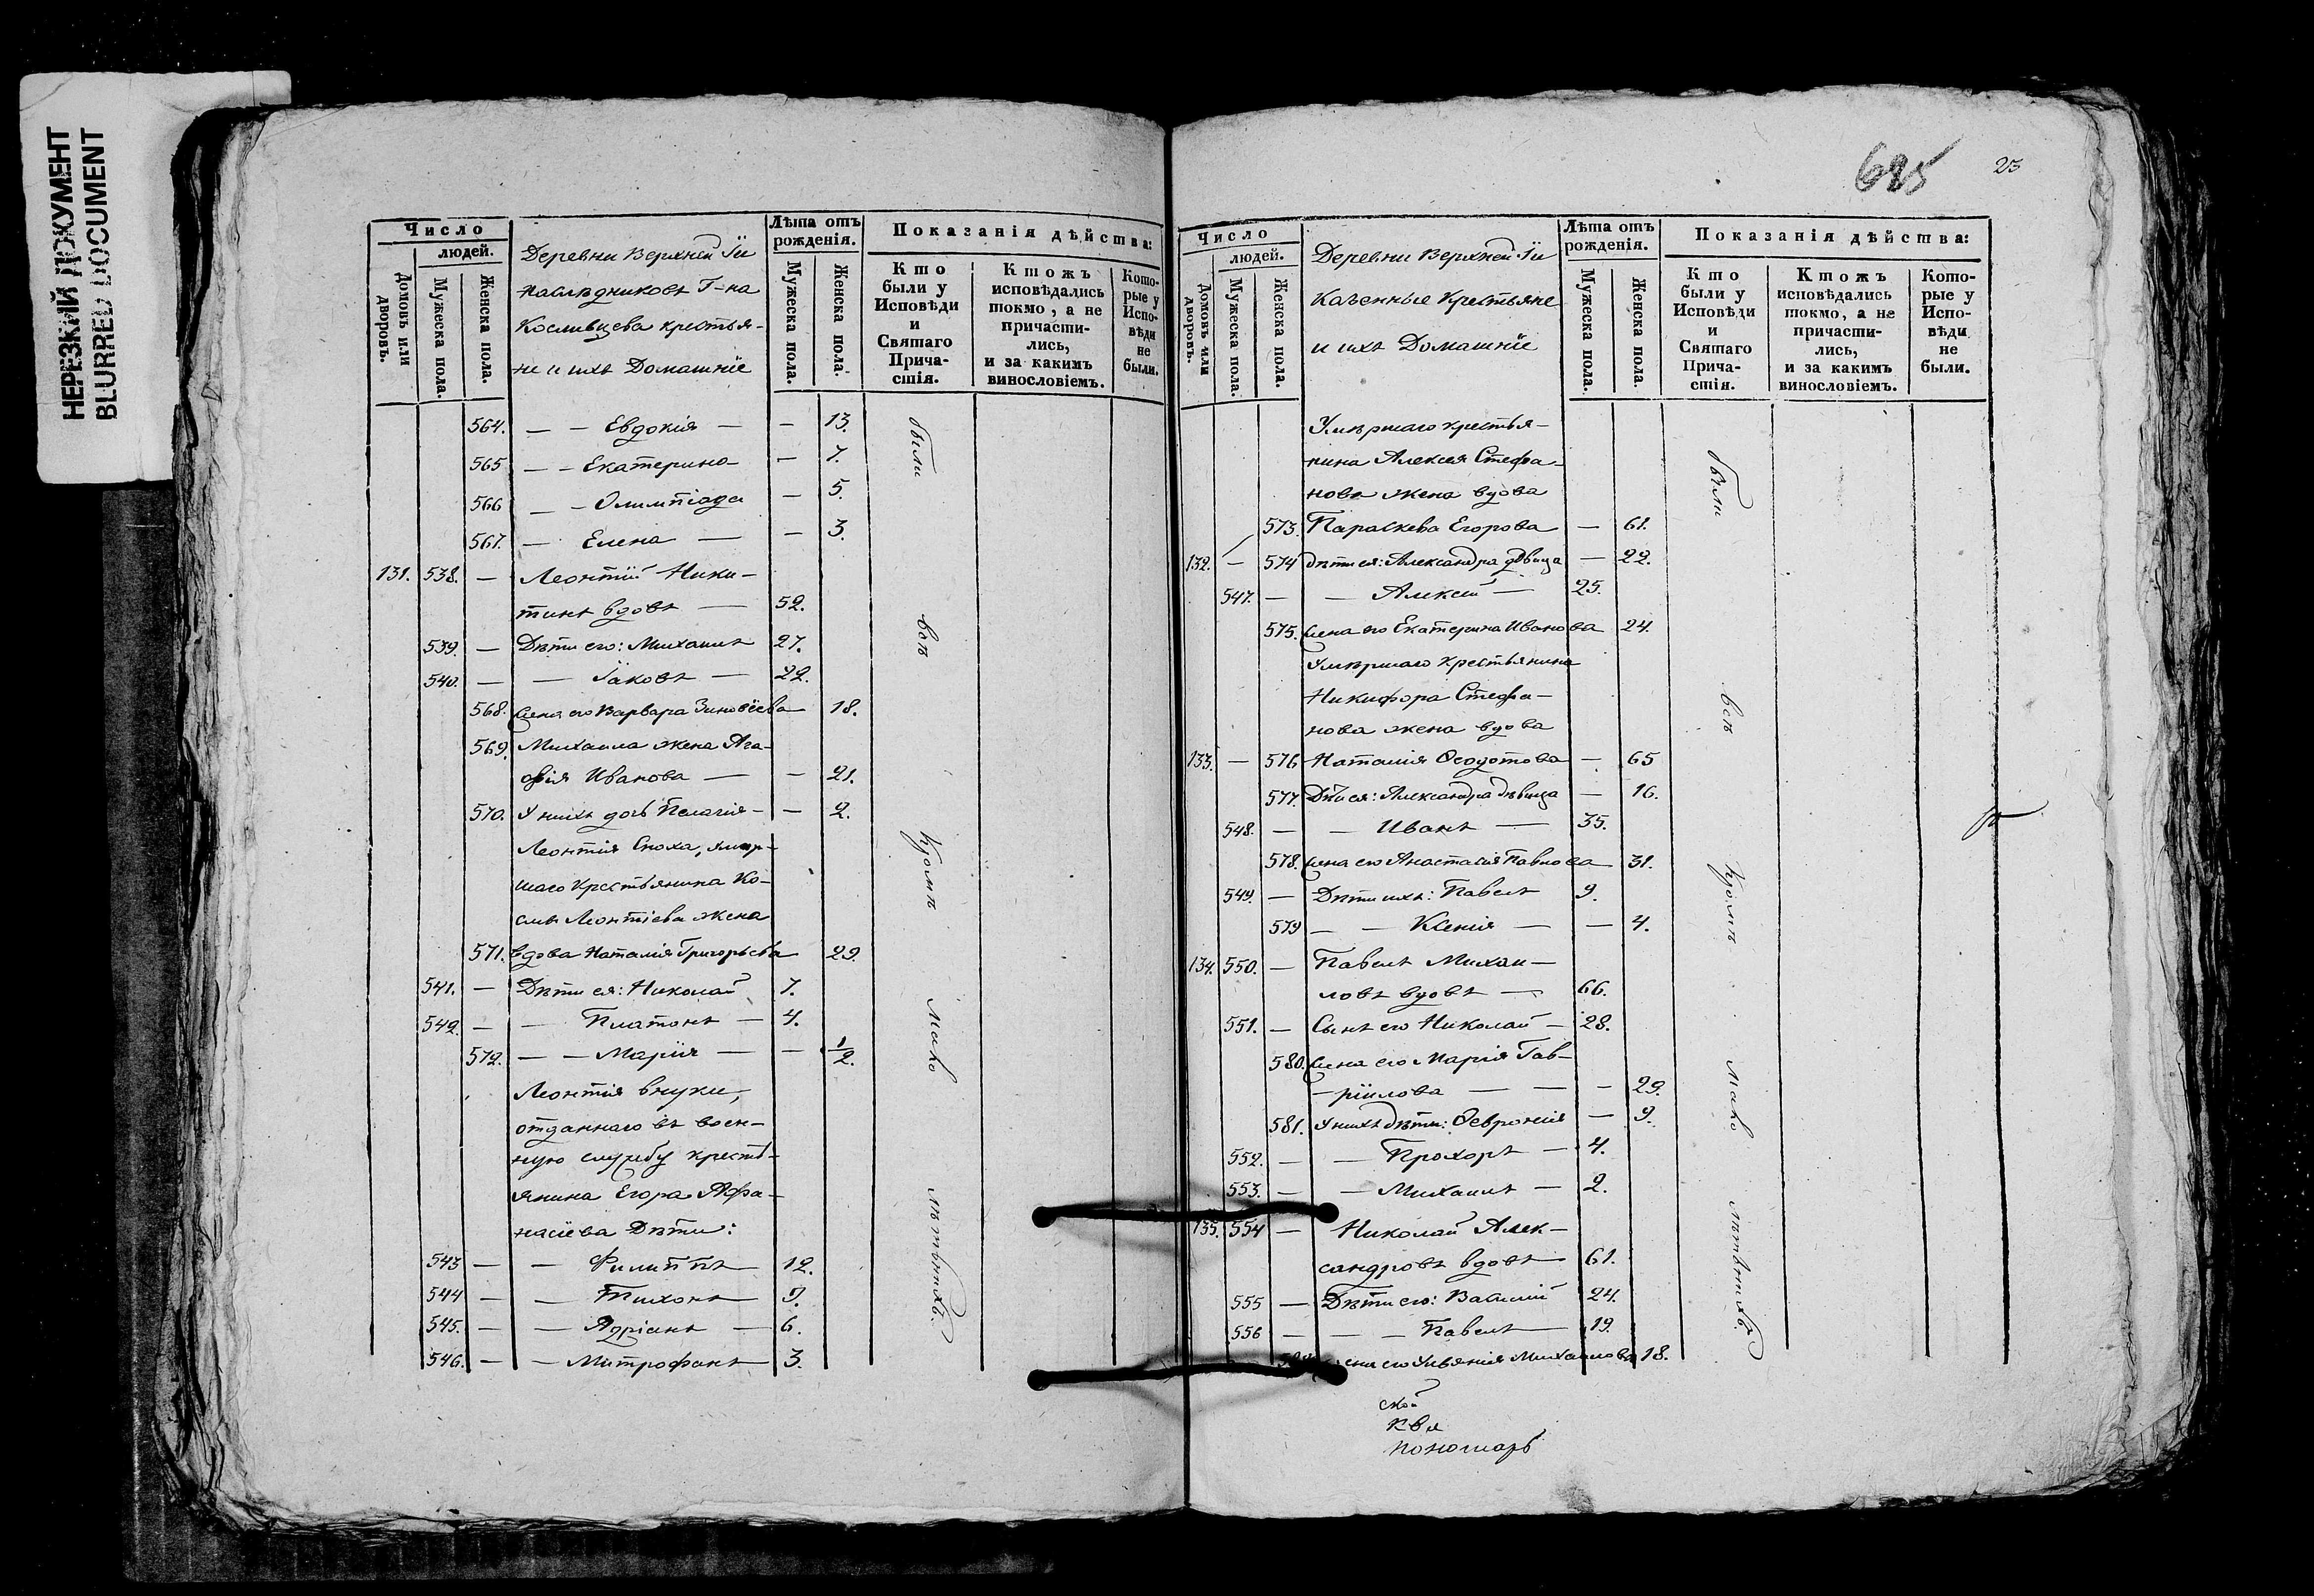 НЕРЕЗКИЙ ДОКУМЕНТ
BLURRED DOCUMENT
Число
людей.
Домовъ или дворовъ.
Мужеска пола.
Женска пола.
Деревни Верхней Ги
наслѣдниковъ Г-на
крестья-
не и ихъ Домашнїе
Лѣта отъ рожденія.
Мужеска пола.
Женска пола.
Показанія дѣйства:
Кто были у Исповѣди и Святаго Причастія.
Ктожъ исповѣдались токмо, а не причастились, и за какимъ винословіемъ.
Которые у Исповѣди не были.
564. — — Евдокія — — 13.
565 — — Екатерина — — 7.
566 — — Олимпіада — 5.
567. — Елена — — 3.
131. 538. — Леонтїй Ники-
тинъ вдовъ — 52.
539. — Дѣти его: Михаилъ 27.
540. — — Їаковъ — 22.
568. жена его Варвара Зиновїева 18.
569. Михаила жена Ага-
фія Иванова — — 21.
570. У нихъ дочь Пелагія — — 2.
Леонтія Сноха, умер-
шаго крестьянина Ко-
смы Леонтіева жена
571. вдова Наталія Григорьева 29.
541. — Дѣти ея: Николай 7.
542. — — Платонъ — 4.
572. — — Марїя — — 1/2.
Леонтія внуки,
отданнаго въ воен-
ную службу кресть-
янина Егора Афа-
насїева Дѣти:
543 — — Филиппъ 12.
544 — — Тихонъ 9.
545. — — Адріанъ — 6.
546. — — Митрофанъ 3.
были
всѣ
кромѣ
мало
лѣтнихъ.
695
23
Число
людей.
Домовъ или дворовъ.
Мужеска пола.
Женска пола.
Деревни Верхней Ги
Казенные Крестьяне
и ихъ Домашнїе
Лѣта отъ рожденія.
Мужеска пола.
Женска пола.
Показанія дѣйства:
Кто были у Исповѣди и Святаго Причастія.
Ктожъ исповѣдались токмо, а не причастились, и за какимъ винословіемъ.
Которые у Исповѣди не были.
Умѣршаго крестья-
нина Алексея Стефа-
нова жена вдова
573. Параскева Егорова — 61.
132. — 574 дѣти ея: Александра дѣвица — 22.
547. — — Алексѣй — 25.
575. жена его Екатерина Иванова 24.
Умѣршаго крестьянина
Никифора Стефа-
нова жена вдова
133. — 576 Наталія Ѳеодотова — 65
577. Дѣти ея: Александра дѣвица — 16.
548. — — Иванъ — 35.
578. жена его Анастасія Павлова 31.
549. — Дѣти ихъ: Павелъ 9.
579 — — Ксенія — — 4.
134. 550. — Павелъ Михаи-
ловъ вдовъ — 66.
551. — Сынъ его Николай — 28.
580. жена его Марія Гав-
рїилова — — — 29.
581. У нихъ дѣти: Ѳевронія — 9.
552. — — Прохоръ — 4.
553. — — Михаилъ — 2.
135. 554 — Николай Алек-
сандровъ вдовъ 61.
555 — Дѣти его: Василий 24.
556 — — Павелъ 19.
жена его Ульянія Михаилова 18.
были
всѣ
кромѣ
мало
лѣтнихъ.
ской
пономарь